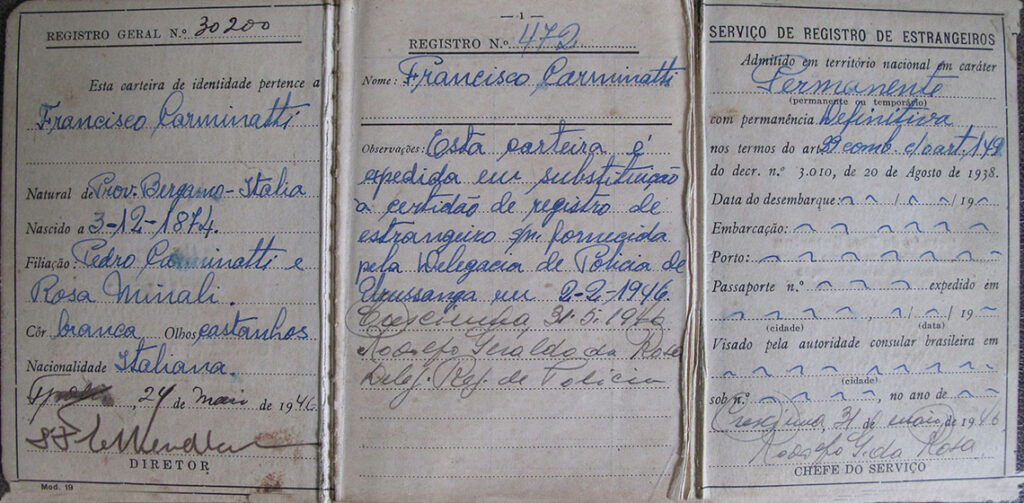 REGISTRO GERAL N.º 30200
Esta carteira de identidade pertence a
Francisco Carminatti
Natural de Prov. Bergamo - Italia
Nascido a 3-12-1874.
Filiação: Pedro Carminatti e
Rosa Minali.
Côr branca Olhos castanhos
Nacionalidade Italiana.
, 24 de Maio de 1946
DIRETOR
Mod. 19
— 1 —
REGISTRO N.º 472
Nome: Francisco Carminatti
Observações: Esta carteira é
expedida em substituição
a certidão de registro de
estrangeiro fornecida
pela Delegacia de Policia de
Urussanga em 2-2-1946.
Cresciuma 31-5-1946
Rodolfo Geraldo da Rosa
Deleg. Reg. de Policia
SERVIÇO DE REGISTRO DE ESTRANGEIROS
Admitido em território nacional em caráter
Permanente
(permanente ou temporário)
com permanência Definitiva
nos termos do art. comb. c/o art. 149
do decr. n.º 3.010, de 20 de Agosto de 1938.
Data do desembarque: / / 19
Embarcação:
Porto:
Passaporte n.º expedido em
, / / 19
(cidade) (data)
Visado pela autoridade consular brasileira em
(cidade)
sob n.º , no ano de
Cresciuma, 31 de maio de 1946
Rodolfo G. da Rosa
CHEFE DO SERVIÇO